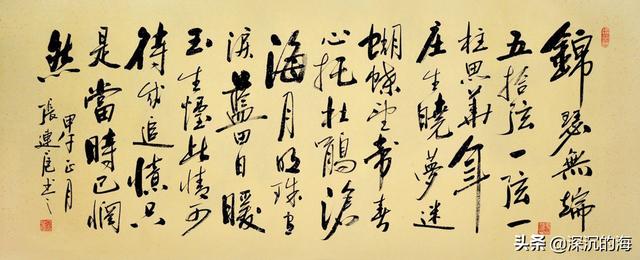 錦瑟無端
五拾弦一弦一
柱思華年
庄生曉夢迷
蝴蝶望帝春
心托杜鵑滄
海月明珠有
淚藍田日暖
玉生煙此情可
待成追憶只
是當時已惘
然
甲午正月
張連
头条 @深沉的海